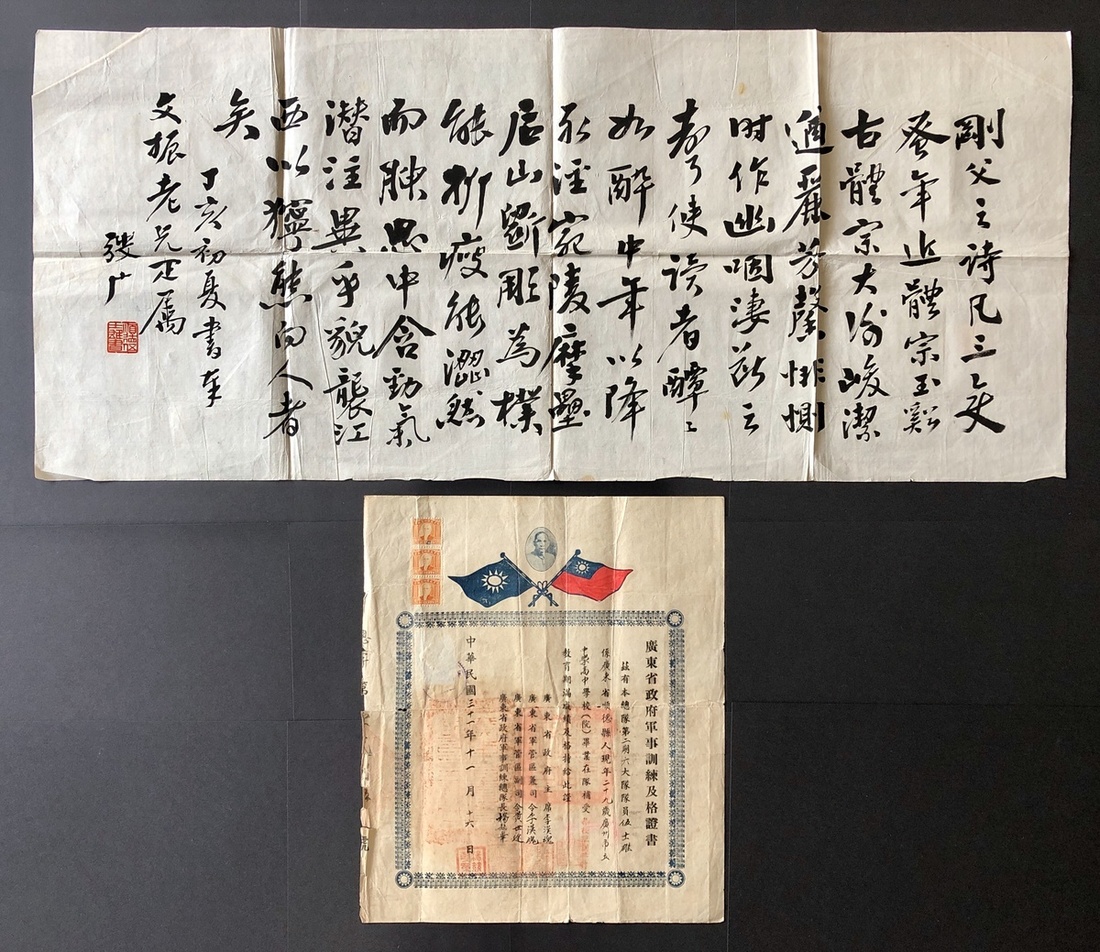 剛父之詩凡三變
蚤年近體宗玉谿
古體宗大謝峻潔
遒麗芳馨悱惻
時作幽咽淒
者使讀者醰々
如醉中年以降
取徑宛陵摩壘
后山斲彫為樸
能 瘦能澀然
而腴思中含勁氣
潛注異乎貌襲江
西以獰態向人者
矣
丁亥初夏書奉
文振老兄正屬
廣東省政府軍事訓練及格證書
茲有本總隊第二期六大隊隊員伍士雄
係廣東省順德縣人現年二十九歲廣州市立
中學高中學校(院)畢業在隊補受
教育期滿成績及格特給此證
廣東省政府主席李漢魂
廣東省軍管區兼司令李漢魂
廣東省軍管區副司令黃世途
廣東省政府軍事訓練總隊長楊 華
中華民國三十一年十一月十六日